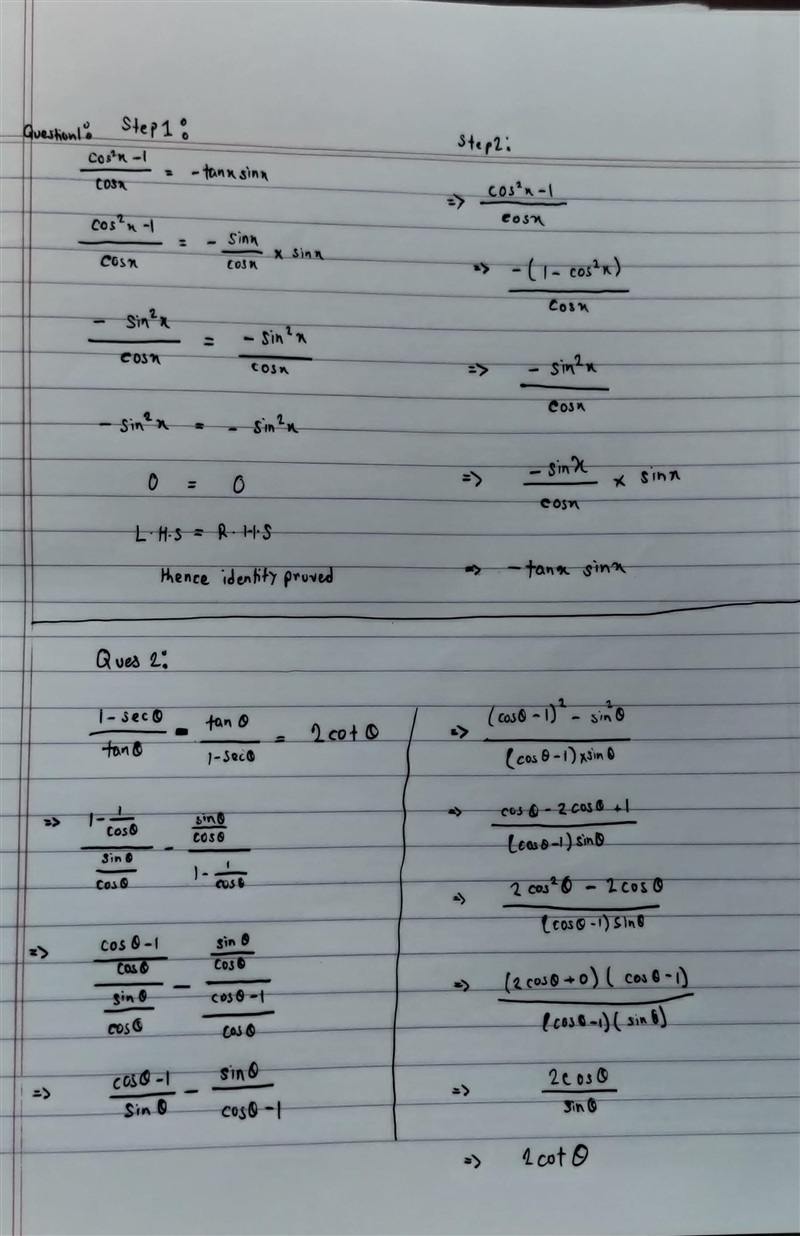 Question1: Step 1:
cos²x - 1 / cosx = - tanx sinx
cos²x - 1 / cosx = - sinx / cosx × sinx
- sin²x / cosx = - sin²x / cosx
- sin²x = - sin²x
0 = 0
L.H.S = R.H.S
Hence identity proved
Step 2:
=> cos²x - 1 / cosx
=> -(1 - cos²x) / cosx
=> - sin²x / cosx
=> - sinx / cosx × sinx
=> - tanx sinx
Ques 2:
1 - secθ / tanθ - tanθ / 1 - secθ = 2cotθ
=> 1 - 1/cosθ / sinθ/cosθ - sinθ/cosθ / 1 - 1/cosθ
=> cosθ - 1/cosθ / sinθ/cosθ - sinθ/cosθ / cosθ - 1/cosθ
=> cosθ - 1 / sinθ - sinθ / cosθ - 1
=> (cosθ - 1)² - sin²θ / (cosθ - 1) × sinθ
=> cosθ - 2cosθ + 1 / (cosθ - 1) sinθ
=> 2cos²θ - 2cosθ / (cosθ - 1) sinθ
=> (2cosθ + 0) (cosθ - 1) / (cosθ - 1) (sinθ)
=> 2cosθ / sinθ
=> 2cotθ